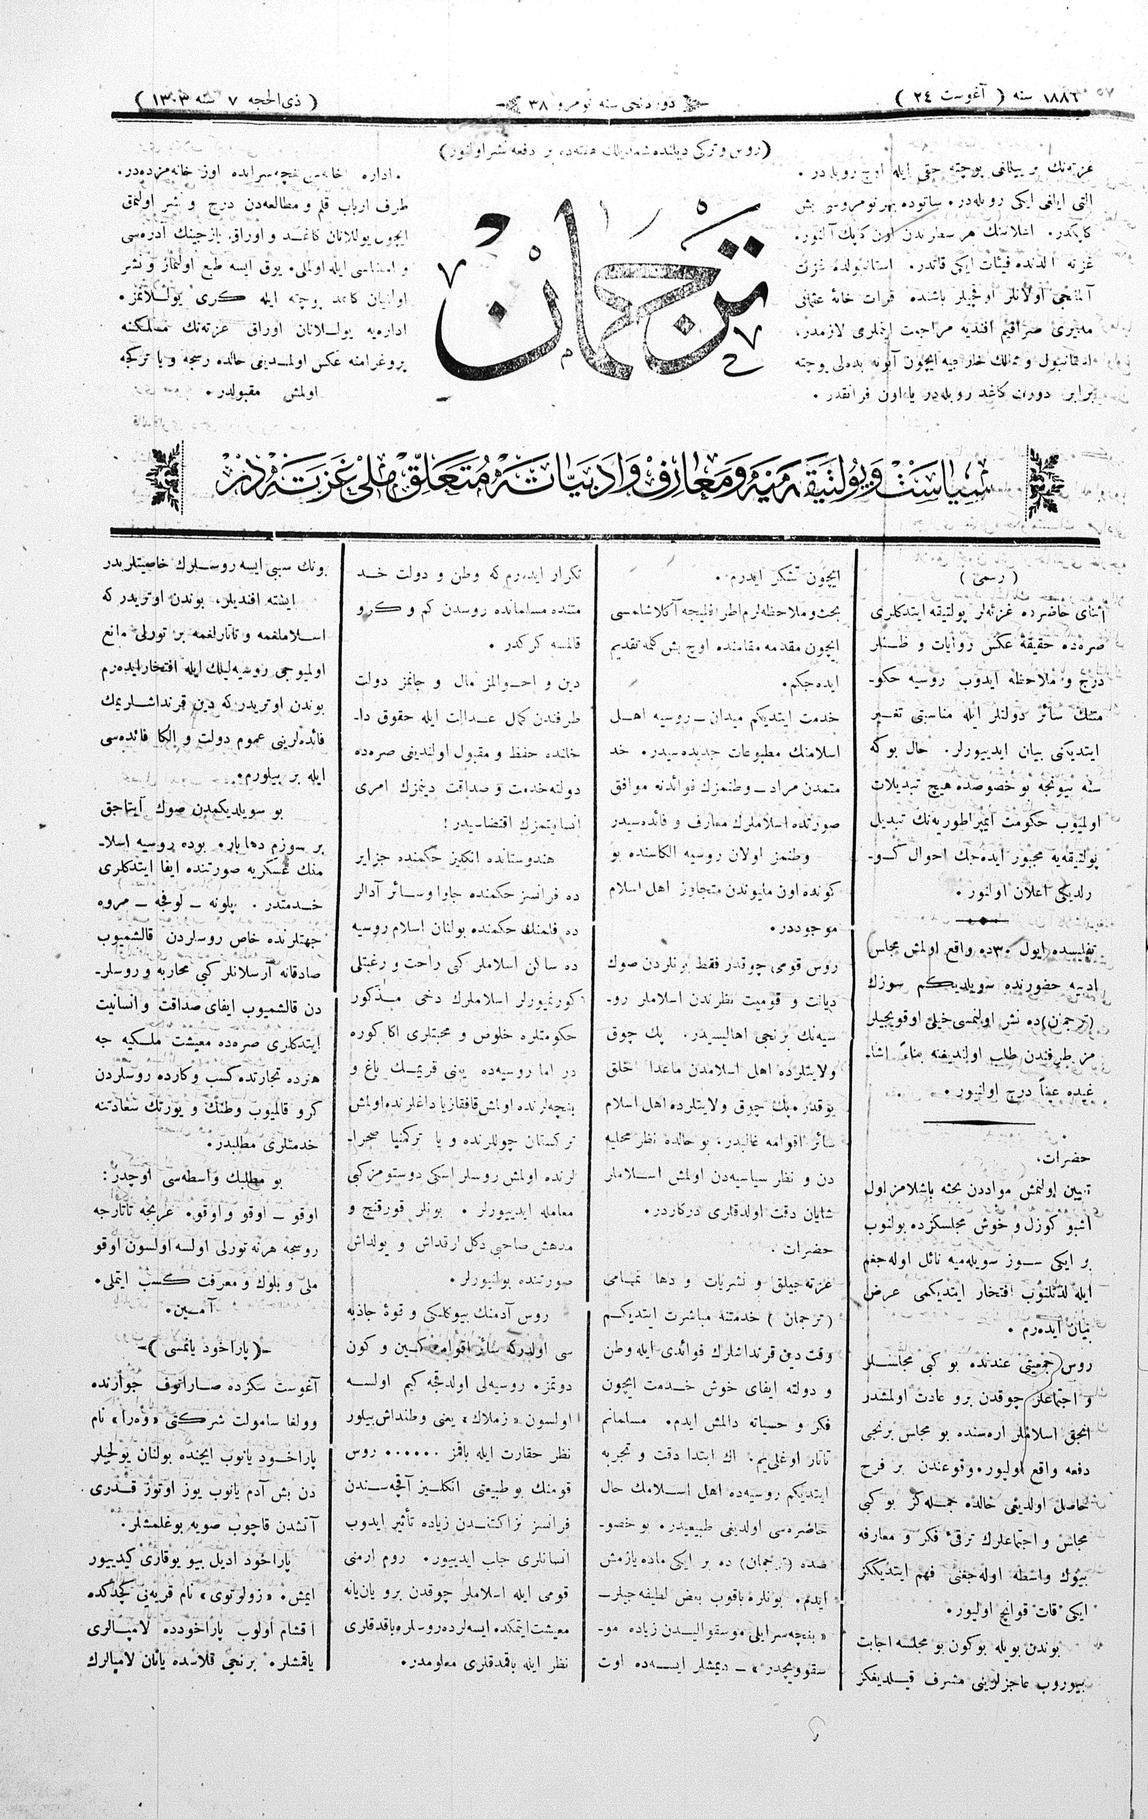 ١٨٨٦ سنه ( آغوست ٢٤ )
دوردنجی سنه نومرو ٣٨
( ذی الحجه ٧ سنه ١٣٠٣ )
(روس و ترکی دیلنده شمدیلك هفته‌ده بر دفعه نشر اولنور)
غزته‌نك بر ییللغی پوچته حقی ایله اوچ روبله‌در .
التی ایلغی ایکی روبله‌در. ساتوده بهر نومروسی بش
کاپکدر. اعلاننك هر سطرندن اون کاپك آلنور.
غزته آلدنده فیئات ایکی قاتدر. استانبولده غزت
آلمنجی اولانلر اوقجیلر باشنده قرائت خانهٔ عثمانی
مدیری صراقیم افندیه مراجعت ایتملری لازمدر.
استانبول و ممالك خارجیه ایچون آبونه بدهلی پوچته
برابر دورت کاغد روبله‌در یا اون فرانقدر .
ترجمان
. اداره خانه‌سی بغچه سرایده اوز خانه‌مزده‌در.
طرف ارباب قلم و مطالعه‌دن درج و نشر اولنمق
ایچون یوللانان کاغد و اوراق یازجینك آدره‌سی
و امضاسی ایله اوالی. یوق ایسه طبع اولنماز و نشر
اولنیان کاغد پوچته ایله کری یوللانمز.
اداره‌یه یوللانان اوراق غزته‌نك مسلکنه
پروغرامنه عکس اولمدینی حالده رسجه و یا ترکجه
اولمش مقبولدر.
سیاست و پولتیقه‌یه و معارف و ادبیاته متعلق ملی غزته‌در
( رسمی )
اثنای حاضرده غزته‌لر پولتیقه ایتدکلری
صره‌ده حقیقهٔ عکس روایات و ظنلر
درج و ملاحظه ایدوب روسیه حکو-
متنك سائر دولتلر ایله مناسبتی تغیر
ایتدیکنی بیان ایدیورلر. حال بوکه
سنه بیونجه بو خصوصده هیچ تبدیلات
اولمیوب حکومت ایمپراطوریه‌نك تبدیل
پولتیقه‌یه مجبور ایده‌جك احوال کو-
رلدیکی اعلان اولنور .
تفلیسده ایول ٣٠ده واقع اولمش مجلس
ادبیه حضورنده سویلدیکم سوزك
(ترجمان)ده نشر اولنمسی خیلی اوقویجیلر
مز طرفندن طلب اولندیغنه بناءً اشا-
غیده عیناً درج اولنیور .
حضرات،
تعیین اولنمش مواددن بحثه باشلامزاول
اشبو کوزل و خوش مجلسکزده بولنوب
بر ایکی سوز سویله‌میه نائل اوله‌جغم
ایله لذتلنوب افتخار ایتدیکمی عرض
بیان ایده‌رم .
روس جمعیتی عندنده بو کبی مجلسلر
و اجتماعلر چوقدن برو عادت اولمشدر
انجق اسلاملر اره‌سنده بو مجلس برنجی
دفعه واقع اولیور. وقوعندن بر فرح
حاصل اولدیغی حالده جمله‌کز بو کبی
مجالس و اجتماعلرك ترقئ فکر و معارفه
بیوك واسطه اوله‌جغنی فهم ایتدیککز
ایکی قات قوانچ اولیور.
بوندن بویله بوکون بو مجلسه اجابت
بیوروب عاجزلرینی مشرف قیلدیغکز
ایچون تشکر ایدرم .
بحث و ملاحظه‌لرم اطرافلیجه آکلاشلمسی
ایچون مقدمه مقامنده اوچ بش کلمه تقدیم
ایده‌جکم.
خدمت ایتدیکم میدان ـ روسیه اهل
اسلامنك مطبوعات جدیده‌سیدر. خد
متمدن مراد ـ وطنمزك فوائدنه موافق
صورتده اسلاملرك معارف و فائده‌سیدر
وطنمز اولان روسیه الکاسنده بو
کونده اون ملیوندن متجاوز اهل اسلام
موجوددر.
روس قومی چوقدر فقط برنلردن صوك
دیانت و قومیت نظرندن اسلاملر رو-
سیه‌نك برنجی اهالیسیدر. پك چوق
ولایتلرده اهل اسلامدن ماعدا خلق
یوقدر. پك چوق ولایتلرده اهل اسلام
سائر اقوامه غالبدر. بو حالده نظر محلیه
دن و نظر سیاسیه‌دن اولمش اسلاملر
شایان دقت اولدقلری درکاردر.
حضرات .
غزته‌جیلق و نشریات و دها تمامی
(ترجمان ) خدمتنه مباشرت ایتدیکم
وقت دین قرنداشلرك فوائدی ایله وطن
و دولته ایفای خوش خدمت ایچون
فکر و حسیاته دالمش ایدم. مسلمانم
تاتار اوغلی‌یم. اك ابتدا دقت و تجربه
ایتدیکم روسیه‌ده اهل اسلامك حال
حاضره‌سی اولدیغی طبیعیدر. بو خصو-
صده (ترجمان) ده بر ایکی ماده یازمش
ایدم. بونلره باقوب بعض لطیفه‌جیلر ـ
« بغچه‌سرایلی موسقوالیدن زیاده مو-
سقوویچدر » ـ دیمشلر ایسه‌ده اوت
تکرار ایدرم که وطن و دولت خد
متنده مسلمانده روسدن کم و کرو
قالمسه کرکدر .
دین و احوالمز مال و جانمز دولت
طرفندن کمال عدالت ایله حقوق دا-
خلنده حفظ و مقبول اولندیغی صره‌ده
دولته خدمت و صداقت دینمزك امری
انسانیتمزك اقتضاسیدر!
هندوستانده انکلیز حکمنده جزایر
ده فرانسز حکمنده جاوا و سائر آدالر
ده فلمنك حکمنده بولنان اسلام روسیه
ده ساکن اسلاملر کبی راحت و رغبتلی
کورنمیورلر اسلاملرك دخی مذکور
حکومتلره خلوص و محبتلری اکا کوره
در اما روسیه‌ده یعنی قریمك باغ و
بنچه‌لرنده اولمش قافقازیا داغلرنده اولمش
ترکستان چوللرنده و یا ترکمنیا صحرا-
لرنده اولمش روسلر اسکی دوستومز کبی
معامله ایدیورلر . بونلر قورقنچ و
مدهش صاحبی دکل ارقداش و یولداش
صورتنده بولنیورلر.
روس آدمنك بیوکلکی و قوهٔ جاذبه
سی اولدرکه سائر اقوامه کین و کون
دوتمز. روسیه‌لی اولدقجه کیم اولسه
اولسون «زملاك» یعنی وطنداش بیلور
نظر حقارت ایله باقمز ...... روس
قومنك بو طبیعتی انکلیز آقچه‌سندن
فرانسز نزاکتندن زیاده تأثیر ایدوب
انسانلری جلب ایدییور. روم ارمنی
قومی ایله اسلاملر چوقدن برو یان‌یانه
معیشت ایتمکده ایسه‌لرده روسلره باقدقلری
نظر ایله باقمدقلری معلومدر.
بونك سببی ایسه روسلرك خاصیتلریدر
ایشته افندیلر، بوندن اوتریدر که
اسلاملغمه و تاتارلغمه بر تورلی مانع
اولمیوجی روسیه‌لیلك ایله افتخار ایده‌رم
بوندن اوتریدر که دین قرنداشلریمك
فائده‌لرینی عموم دولت و الکا فائده‌سی
ایله بر بیلورم.
بو سویلدیکمدن صوك آیتاجق
بر سوزم دها بار. بوده روسیه اسلا-
منك عسکریه صورتنده ایفا ایتدکلری
خدمتدر . پلونه ـ لوفجه ـ مروه
جهتلرنده خاص روسلردن قالشمیوب
صادقانه آرسلانلر کبی محاربه و روسلر-
دن قالشمیوب ایفای صداقت و انسانیت
ایتدکلری صره‌ده معیشت ملکیه جه
هنرده تجارتده کسب و کارده روسلردن
کرو قالمیوب وطنك و یورتك سعادتنه
خدمتلری مطلبدر.
بو مطلبك واسطه‌سی اوچدر:
اوقو ـ اوقو و اوقو. عربجه تاتارجه
روسجه هر نه تورلی اولسه اولسون اوقو
ملی و بلوك و معرفت کسب ایتملی.
آمین.
-(پاراخود یانمسی)-
آغوست سکزده صاراتوف جوارنده
وولغا سامولت شرکتی «وه‌را» نام
پاراخود یانوب ایچنده بولنان یولجیلر
دن بش آدم یانوب یوز اوتوز قدری
آتشدن قاچوب صویه بوغلمشلر.
پاراخود ادیل بیو یوقاری کیدییور
ایمش. «زولرتوی» نام قریه‌نی کچدکده
اقشام اولوب پاراخودده لامپالری
یاقمشلر. برنجی قلاسده یانان لامپالرك